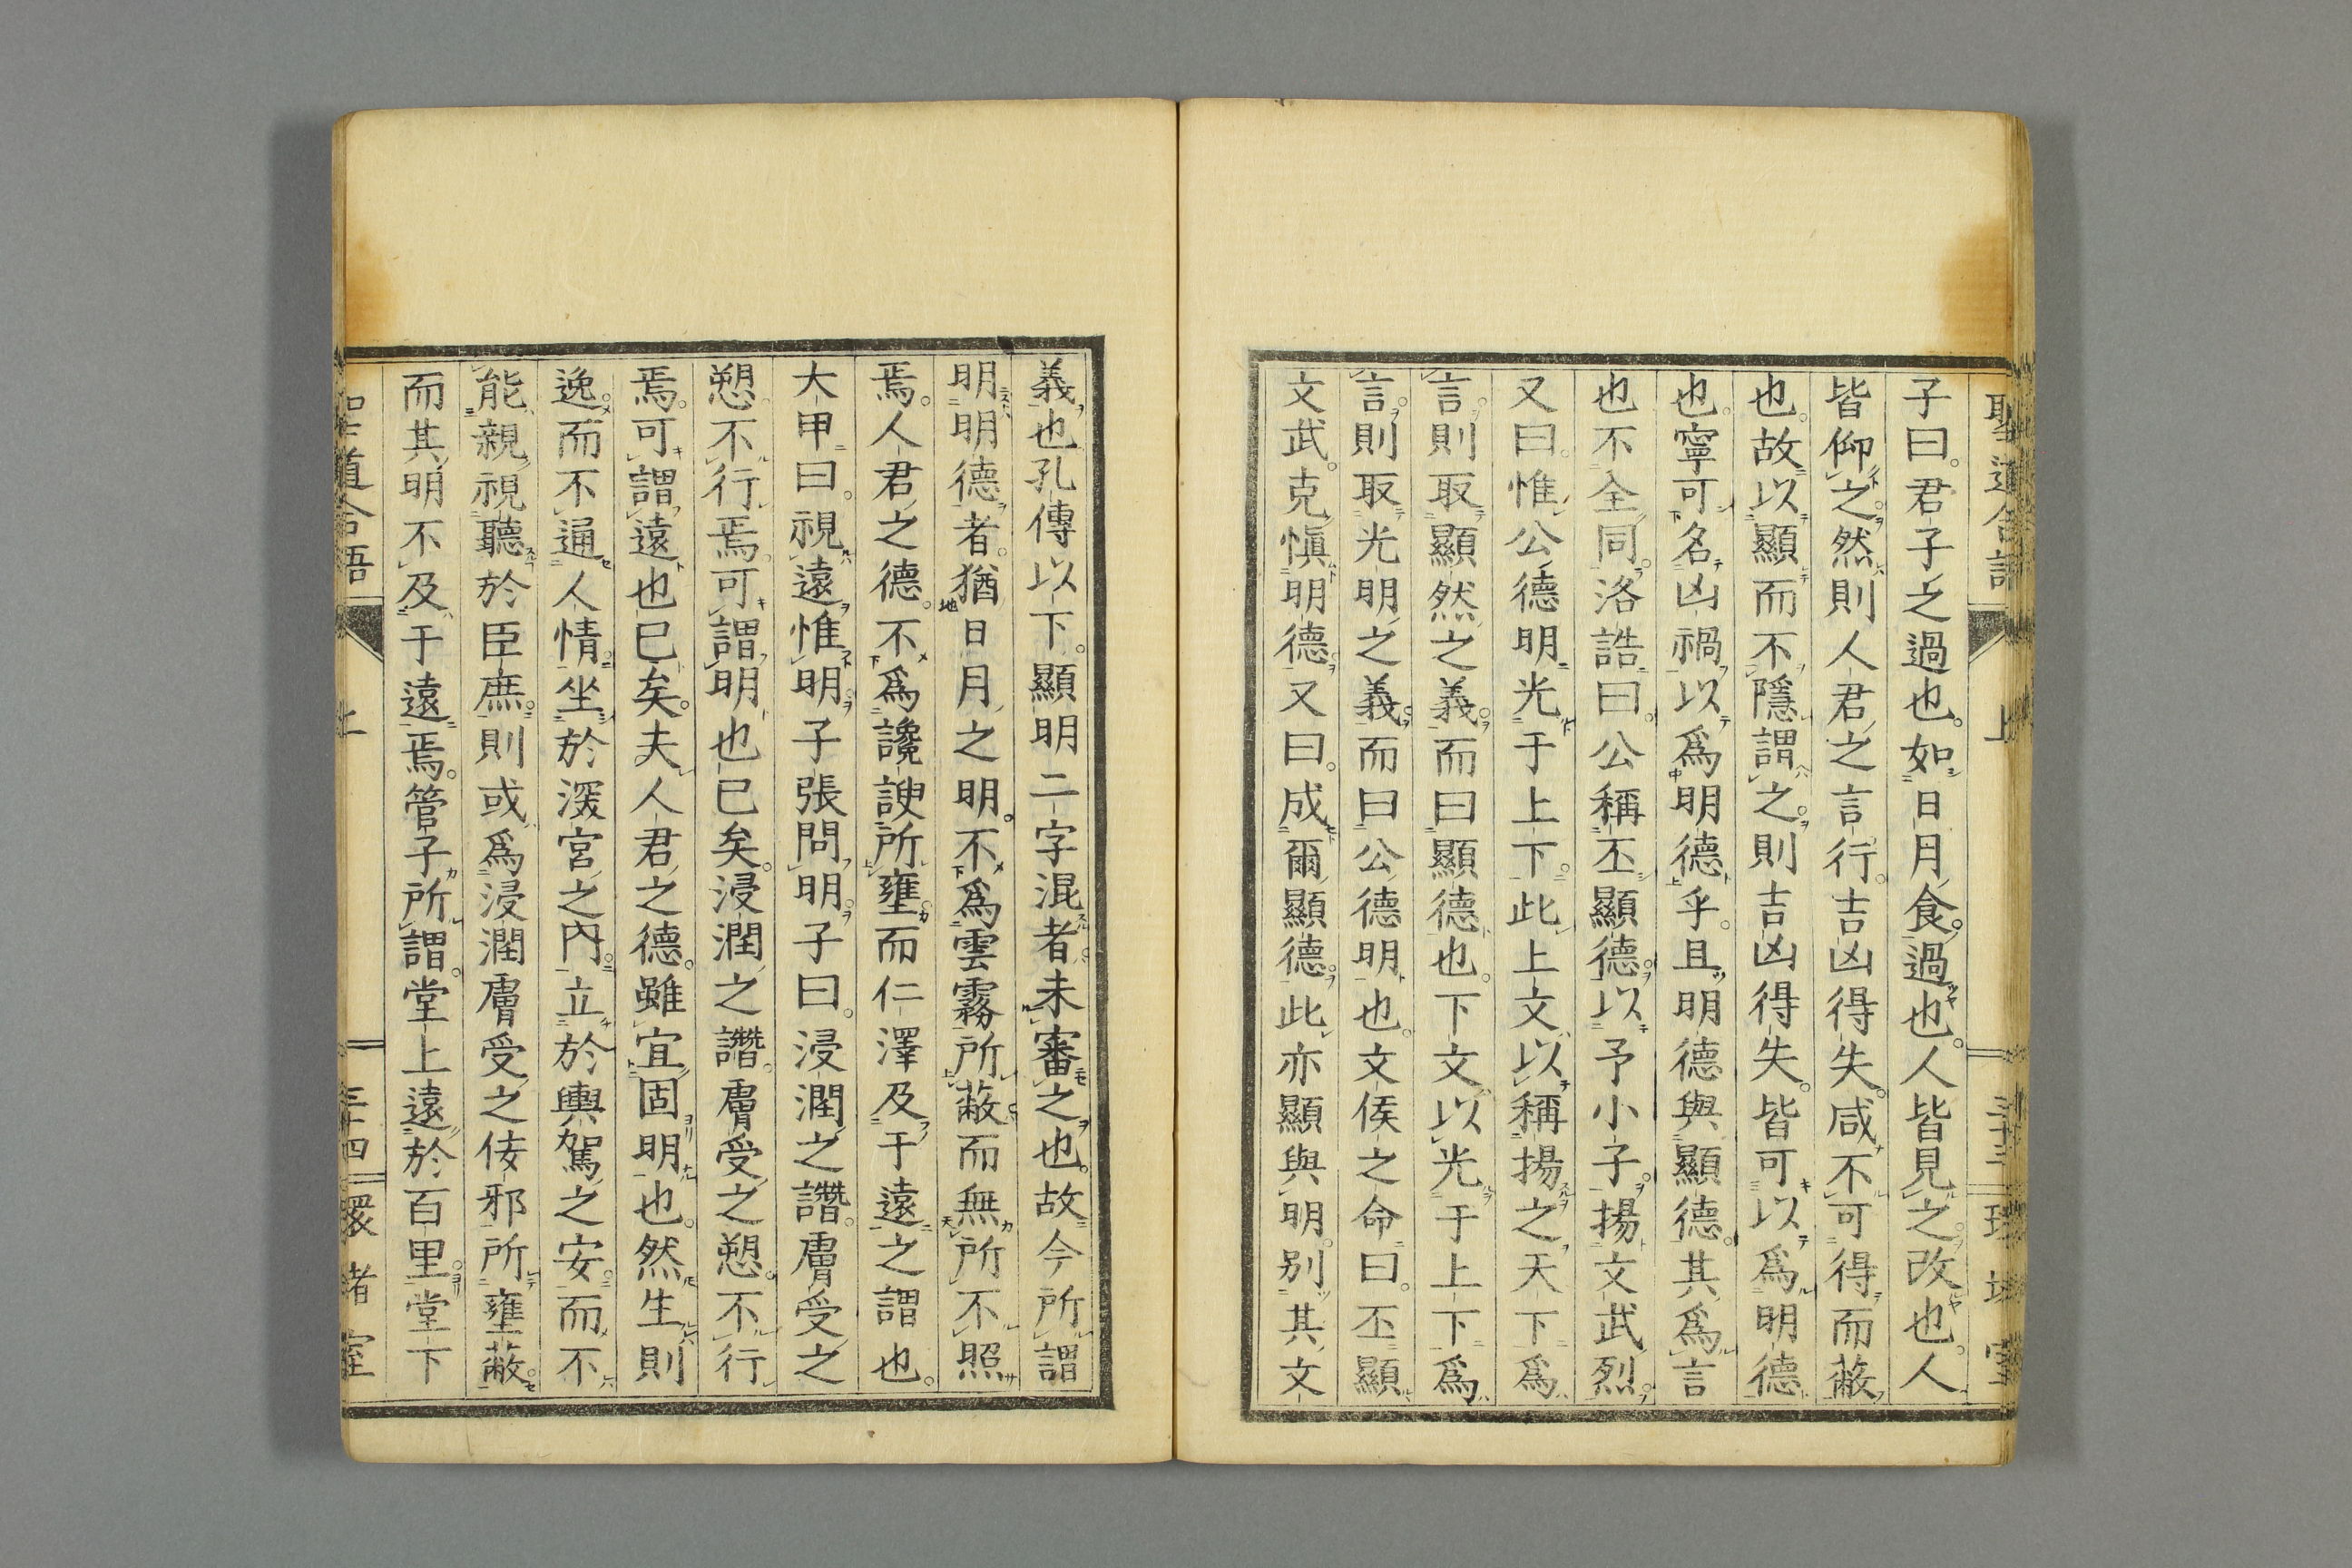 聖道合語 上
子曰。君子之過也。如日月食。過也。人皆見之。改也。人
皆仰之。然則人君之言行。吉凶得失。咸不可得而蔽
也。故以顯而不隱謂之。則吉凶得失。皆可以爲明德
也。寧可名凶禍以爲明德乎。且明德與顯德。其爲言
也不全同。洛誥曰。公稱丕顯德。以予小子。揚文武烈。
又曰。惟公德明光于上下。此上文以稱揚之天下爲
言。則取顯然之義。而曰顯德也。下文以光于上下爲
言。則取光明之義。而曰公德明也。文侯之命曰。丕顯
文武。克愼明德。又曰。成爾顯德。此亦顯與明。別其文
義也孔傳以下。顯明二字混者。未審之也。故今所謂
明明德者。猶日月之明。不爲雲霧所蔽而無所不照
焉。人君之德。不爲讒諛所壅而仁澤及于遠之謂也。
大甲曰。視遠惟明。子張問明。子曰。浸潤之譖。膚受之
愬不行焉。可謂明也已矣。浸潤之譖。膚受之愬。不行
焉。可謂遠也已矣。夫人君之德。雖宜固明也。然生則
逸。而不通人情。坐於深宮之內。立於輿駕之安。而不
能親視聽於臣庶。則或爲浸潤膚受之佞邪所壅蔽。
而其明不及于遠焉。管子所謂。堂上遠於百里。堂下
聖道合語 上 三十四 環堵室